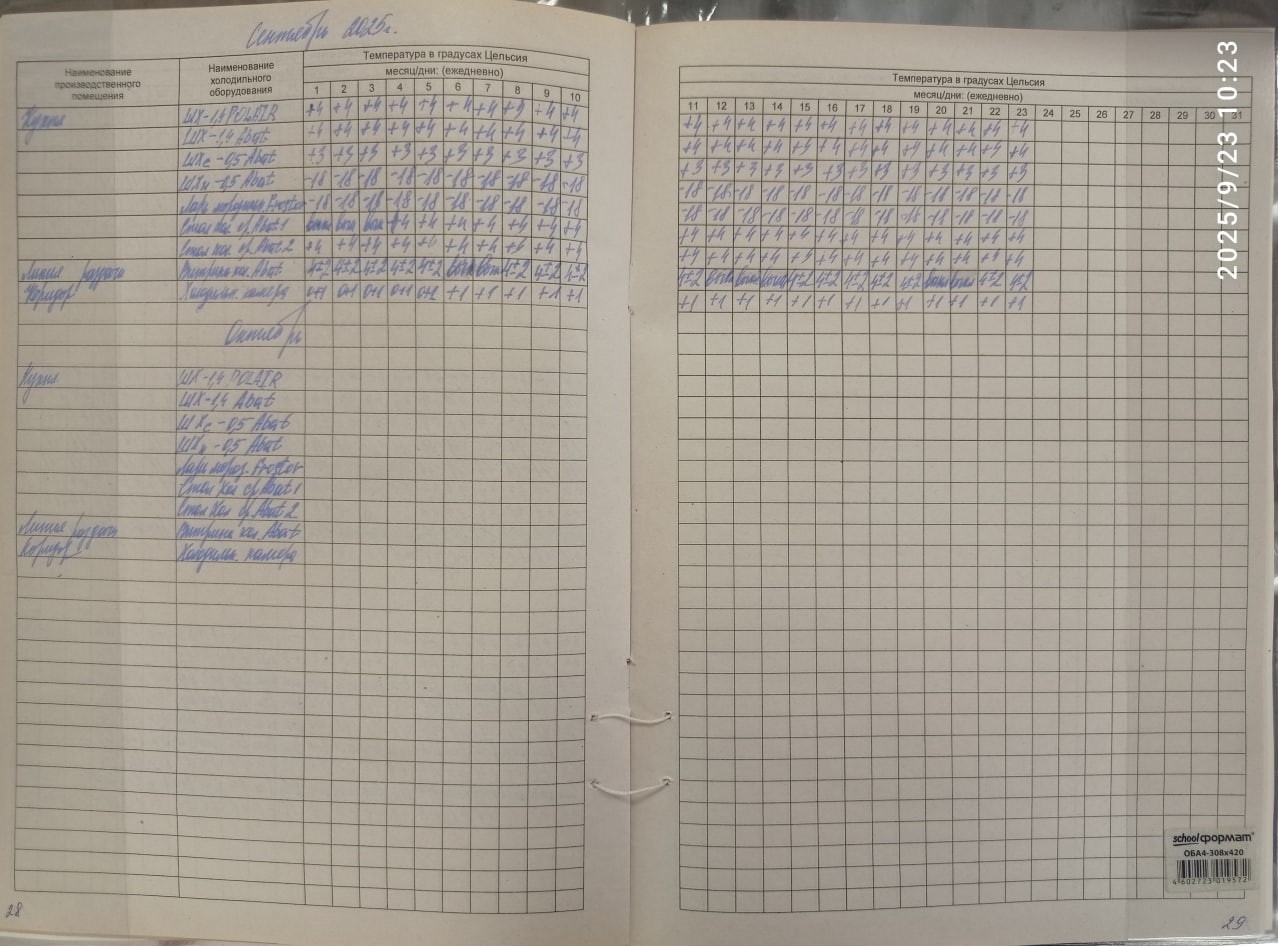 Сентябрь 2025г.
Наименование производственного помещения
Наименование холодильного оборудования
Температура в градусах Цельсия
месяц/дни: (ежедневно)
1 2 3 4 5 6 7 8 9 10
Температура в градусах Цельсия
месяц/дни: (ежедневно)
11 12 13 14 15 16 17 18 19 20 21 22 23 24 25 26 27 28 29 30 31
Кухня ШХ-1,4 POLAIR +4 +4 +4 +4 +4 +4 +4 +4 +4 +4 +4 +4 +4 +4 +4 +4 +4 +4 +4 +4 +4 +4 +4
ШХ-1,4 Abat +4 +4 +4 +4 +4 +4 +4 +4 +4 +4 +4 +4 +4 +4 +4 +4 +4 +4 +4 +4 +4 +4 +4
ШХс-0,5 Abat +3 +3 +3 +3 +3 +3 +3 +3 +3 +3 +3 +3 +3 +3 +3 +3 +3 +3 +3 +3 +3 +3 +3
ШХн-0,5 Abat -18 -18 -18 -18 -18 -18 -18 -18 -18 -18 -18 -18 -18 -18 -18 -18 -18 -18 -18 -18 -18 -18 -18
Ларь морозильн. Frostor -18 -18 -18 -18 -18 -18 -18 -18 -18 -18 -18 -18 -18 -18 -18 -18 -18 -18 -18 -18 -18 -18 -18
Стол хол. ср. Abat 1 +4 +4 +4 +4 +4 +4 +4 +4 +4 +4 +4 +4 +4 +4 +4 +4 +4 +4 +4 +4
Стол хол. ср. Abat 2 +4 +4 +4 +4 +4 +4 +4 +4 +4 +4 +4 +4 +4 +4 +4 +4 +4 +4 +4 +4 +4 +4 +4
Линия раздачи Витрина хол. Abat 4±2 4±2 4±2 4±2 4±2 4±2 4±2 4±2 4±2 4±2 4±2 4±2 4±2 4±2 4±2 4±2
Коридор Холодильн. камера 0+1 0+1 0+1 0+1 0+1 +1 +1 +1 +1 +1 +1 +1 +1 +1 +1 +1 +1 +1 +1 +1 +1 +1 +1
Октябрь
Кухня ШХ-1,4 POLAIR
ШХ-1,4 Abat
ШХс-0,5 Abat
ШХн-0,5 Abat
Ларь мороз. Frostor
Стол хол ср Abat 1
Стол хол ср. Abat 2
Линия раздачи Витрина хол. Abat
Коридор Холодильн. камера
28
29
schoolформат
ОБА4-308х420
4 602723 019572
2025/9/23 10:23